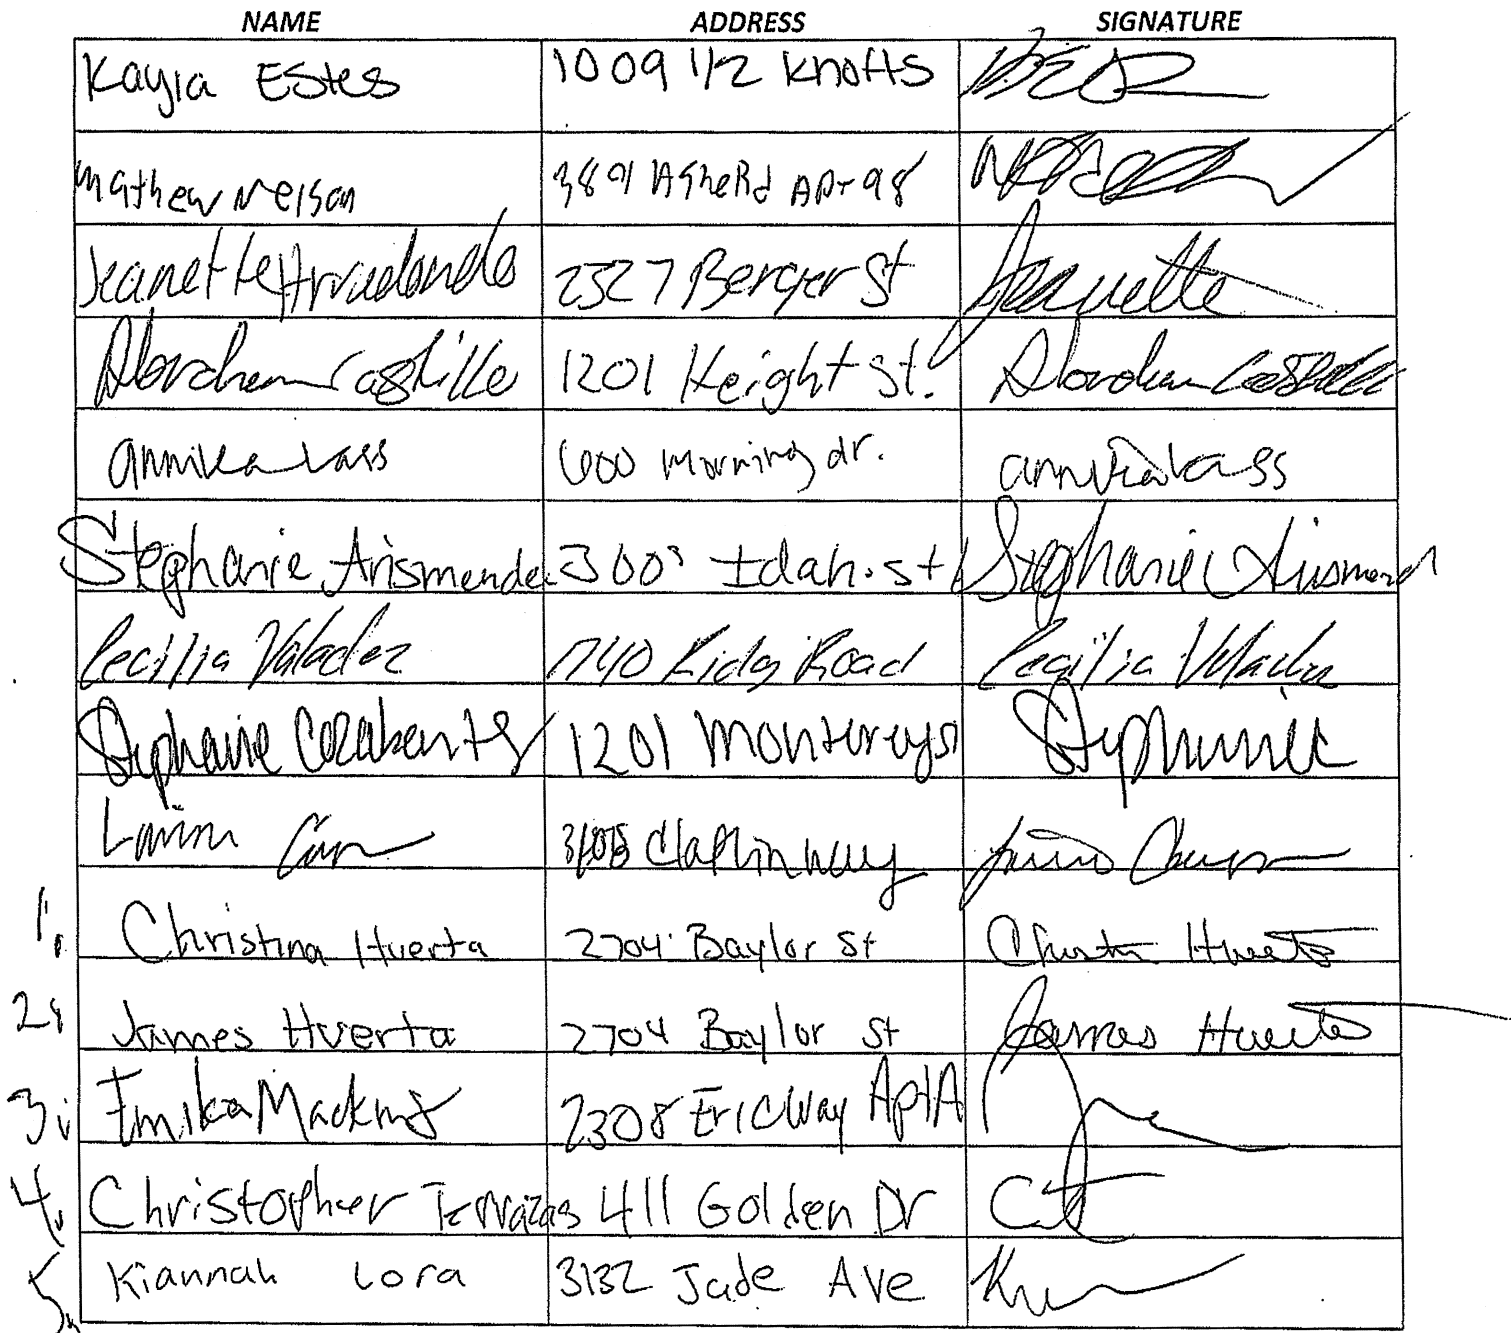 NAME ADDRESS SIGNATURE
Kayla Estes 1009 1/2 Knotts
Mathew Nelson 3891 Ashe Rd Apt 98
Jeanette Arredondo 2327 Berger St Jeanette
Abraham Castillo 1201 Height St. Abraham Castillo
annika kass 600 Morning dr. annika kass
Stephanie Arismende 300 Idaho st Stephanie Arismend
Cecilia Valadez 1740 Ridg Road Cecilia Valadez
Stephanie 1201 Montereyst Stephanie
Claflin way
1. Christina Huerta 2704 Baylor St Christina Huerta
2. James Huerta 2704 Baylor St James Huerta
3. Emika 2308 Eric Way Apt A
4. Christopher Terrazas 411 Golden Dr
5. Kiannah Lora 3132 Jade Ave